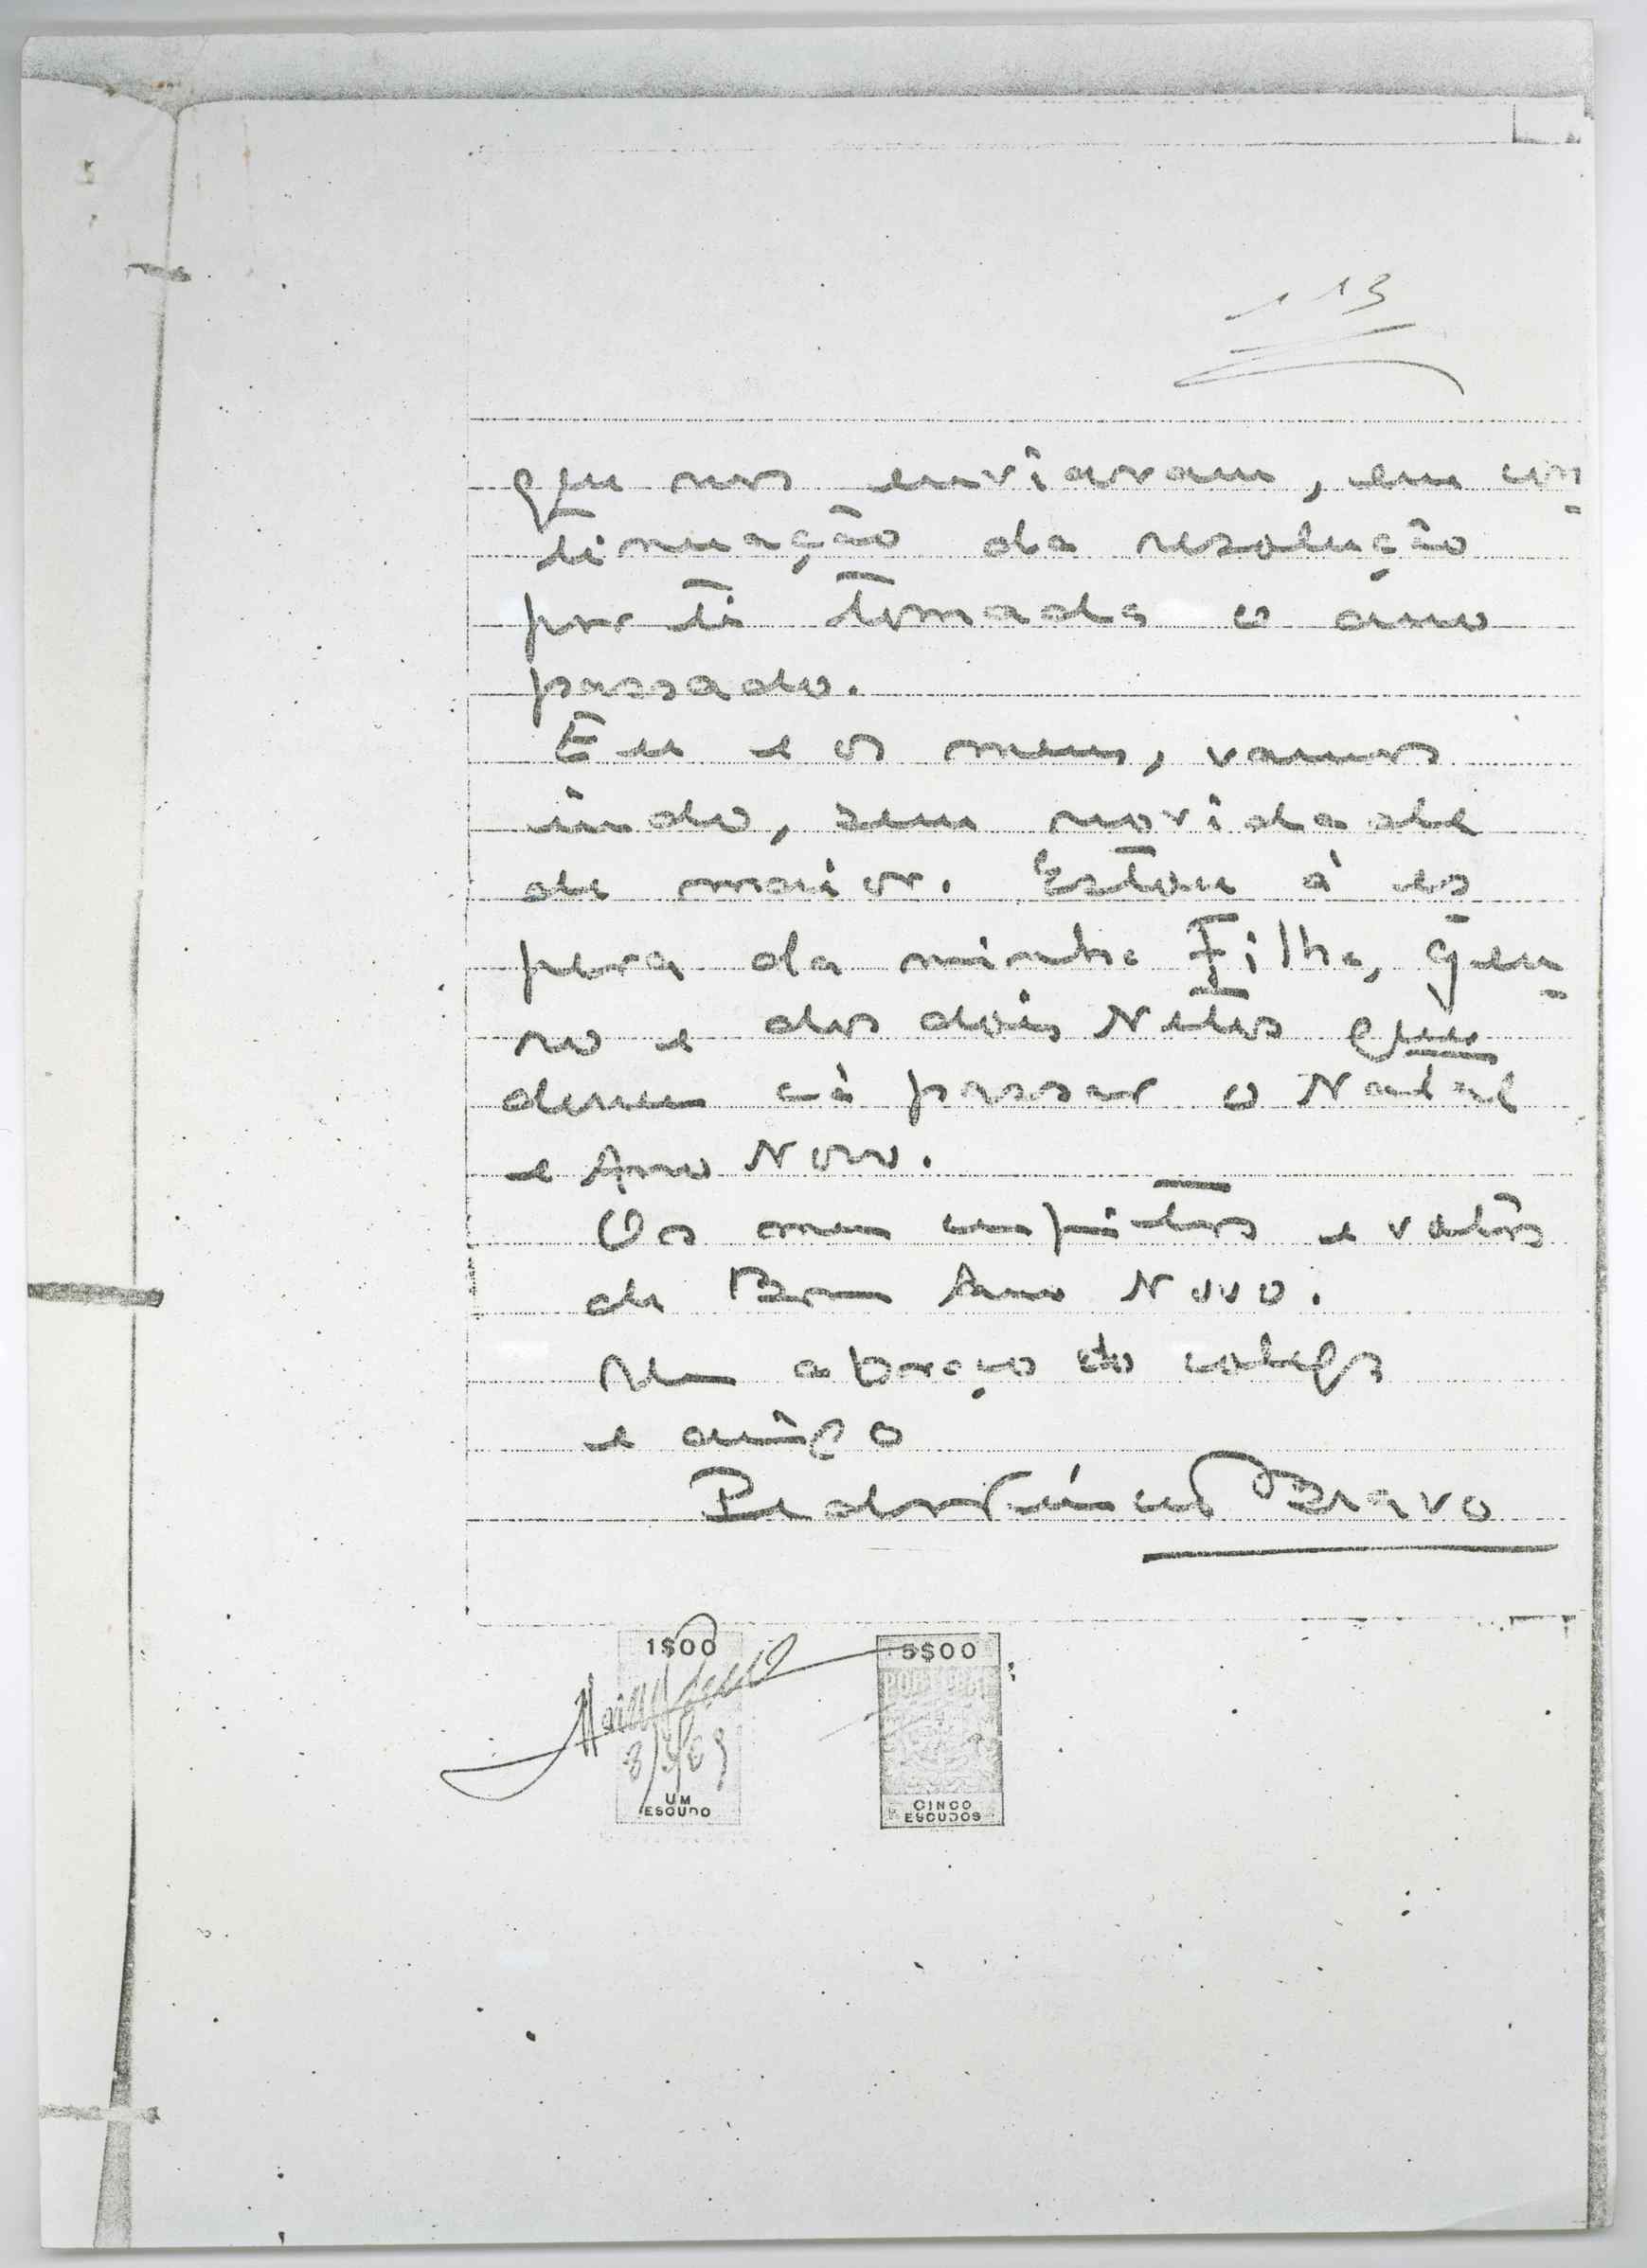 113
que nos enviaram, em con-
tinuação da resolução
por ti tomada o ano
passado.
Eu e os meus, vamos
indo, sem novidade
de maior. Estou à es-
pera da minha Filha, gen-
ro e dos dois Netos que
devem cá passar o Natal
e Ano Novo.
Os meus respeitos e votos
de Bom Ano Novo.
Um abraço do colega
e amigo
Bravo
1$00
UM
ESCUDO
5$00
PORTUGAL
CINCO
ESCUDOS